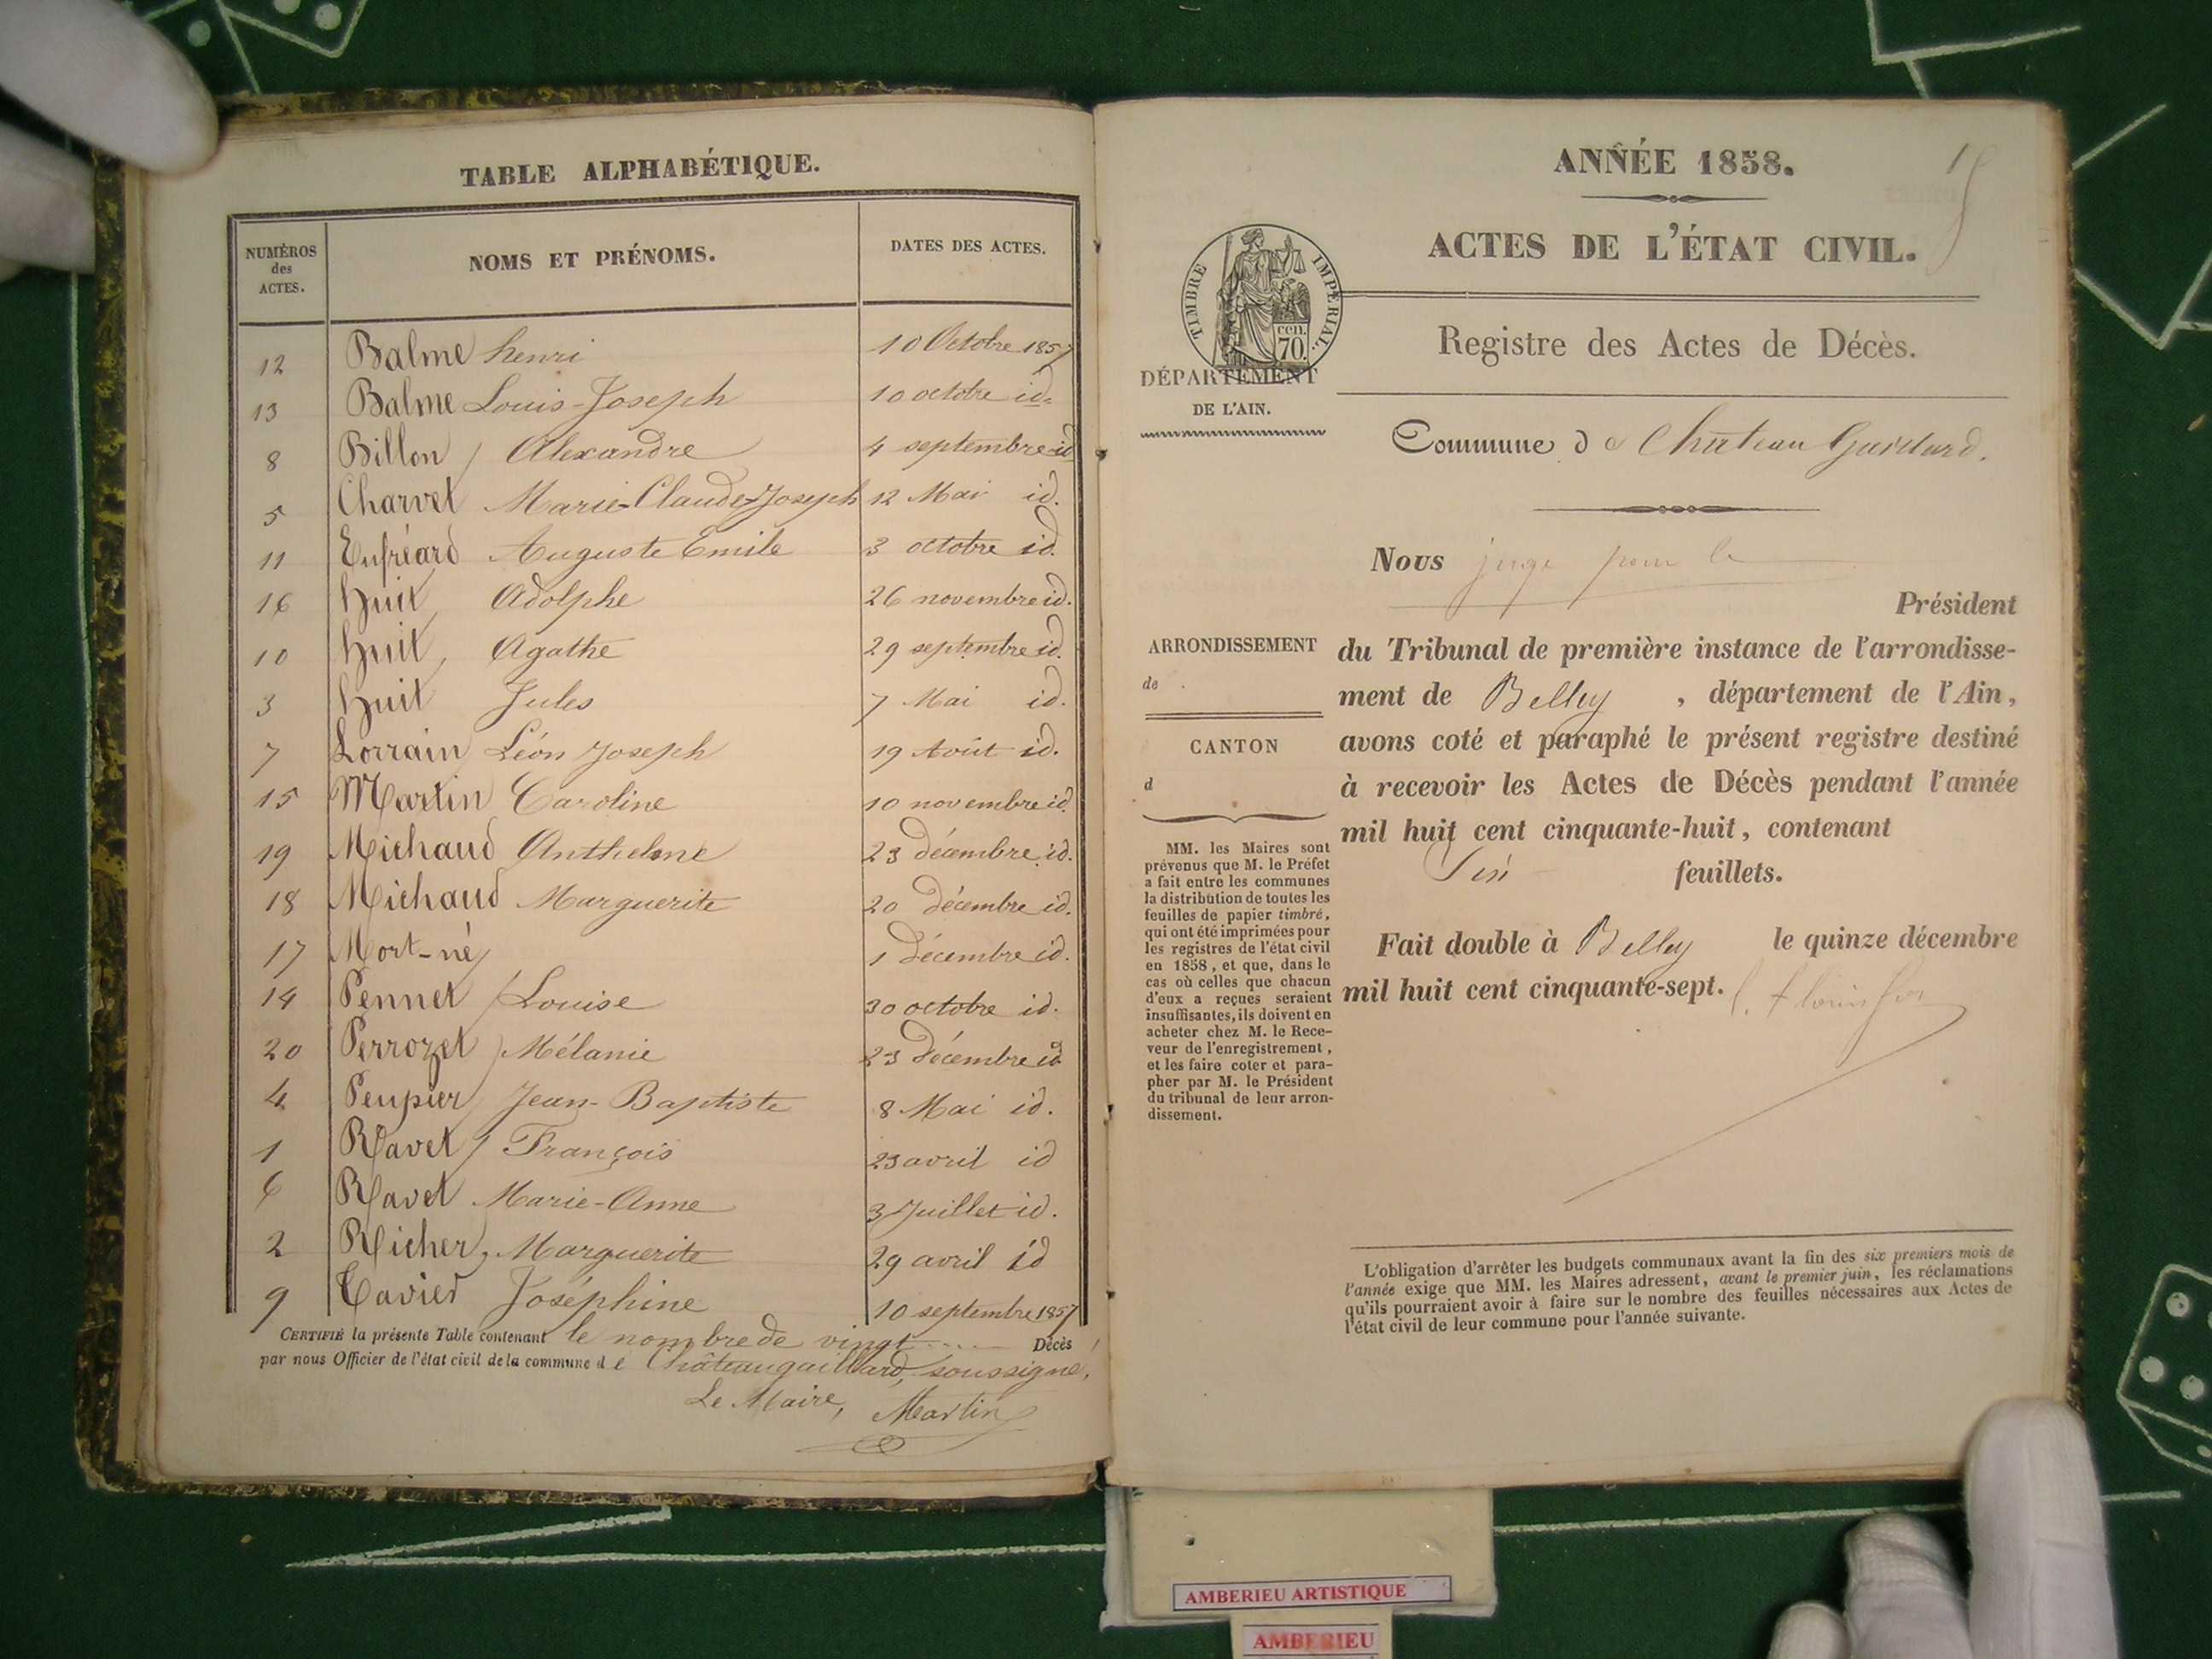 TABLE ALPHABÉTIQUE.
NUMÉROS des ACTES. NOMS ET PRÉNOMS. DATES DES ACTES.
12 Balme henri 10 Octobre 1857
13 Balme Louis-Joseph 10 octobre id.
8 Billon Alexandre 4 septembre id
5 Charvet Marie-Claude-Joseph 12 Mai id.
11 Auguste Emile 3 octobre id.
16 huit Adolphe 26 novembre id.
10 huit, Agathe 29 septembre id.
3 huit Jules 7 Mai id.
7 Lorrain Léon Joseph 19 Août id.
15 Martin Caroline 10 novembre id.
19 Michaud Anthelme 23 décembre id.
18 Michaud Marguerite 20 décembre id.
17 Mort-né 1 décembre id.
14 Pennet Louise 30 octobre id.
20 Perrozet Mélanie 23 décembre id
4 Peupier Jean-Baptiste 8 Mai id.
1 Ravet François 23 avril id
6 Ravet Marie-Anne 3 Juillet id.
2 Richer, Marguerite 29 avril id
9 Tavier Joséphine 10 septembre 1857
CERTIFIÉ la présente Table contenant le nombre de vingt Décès
par nous Officier de l'état civil de la commune de Châteaugaillard, soussigné,
Le Maire, Martin
ANNÉE 1858.
ACTES DE L'ÉTAT CIVIL.
TIMBRE IMPÉRIAL.
cen.
70.
Registre des Actes de Décès.
DÉPARTEMENT
DE L'AIN.
Commune de Château Gaillard.
Nous juge pour le
Président
ARRONDISSEMENT
de
CANTON
d
du Tribunal de première instance de l'arrondisse-
ment de Belley, département de l'Ain,
avons coté et paraphé le présent registre destiné
à recevoir les Actes de Décès pendant l'année
mil huit cent cinquante-huit, contenant
feuillets.
MM. les Maires sont
prévenus que M. le Préfet
a fait entre les communes
la distribution de toutes les
feuilles de papier timbré,
qui ont été imprimées pour
les registres de l'état civil
en 1858, et que, dans le
cas où celles que chacun
d'eux a reçues seraient
insuffisantes, ils doivent en
acheter chez M. le Rece-
veur de l'enregistrement,
et les faire coter et para-
pher par M. le Président
du tribunal de leur arron-
dissement.
Fait double à Belley le quinze décembre
mil huit cent cinquante-sept.
L'obligation d'arrêter les budgets communaux avant la fin des six premiers mois de
l'année exige que MM. les Maires adressent, avant le premier juin, les réclamations
qu'ils pourraient avoir à faire sur le nombre des feuilles nécessaires aux Actes de
l'état civil de leur commune pour l'année suivante.
AMBERIEU ARTISTIQUE
AMBERIEU